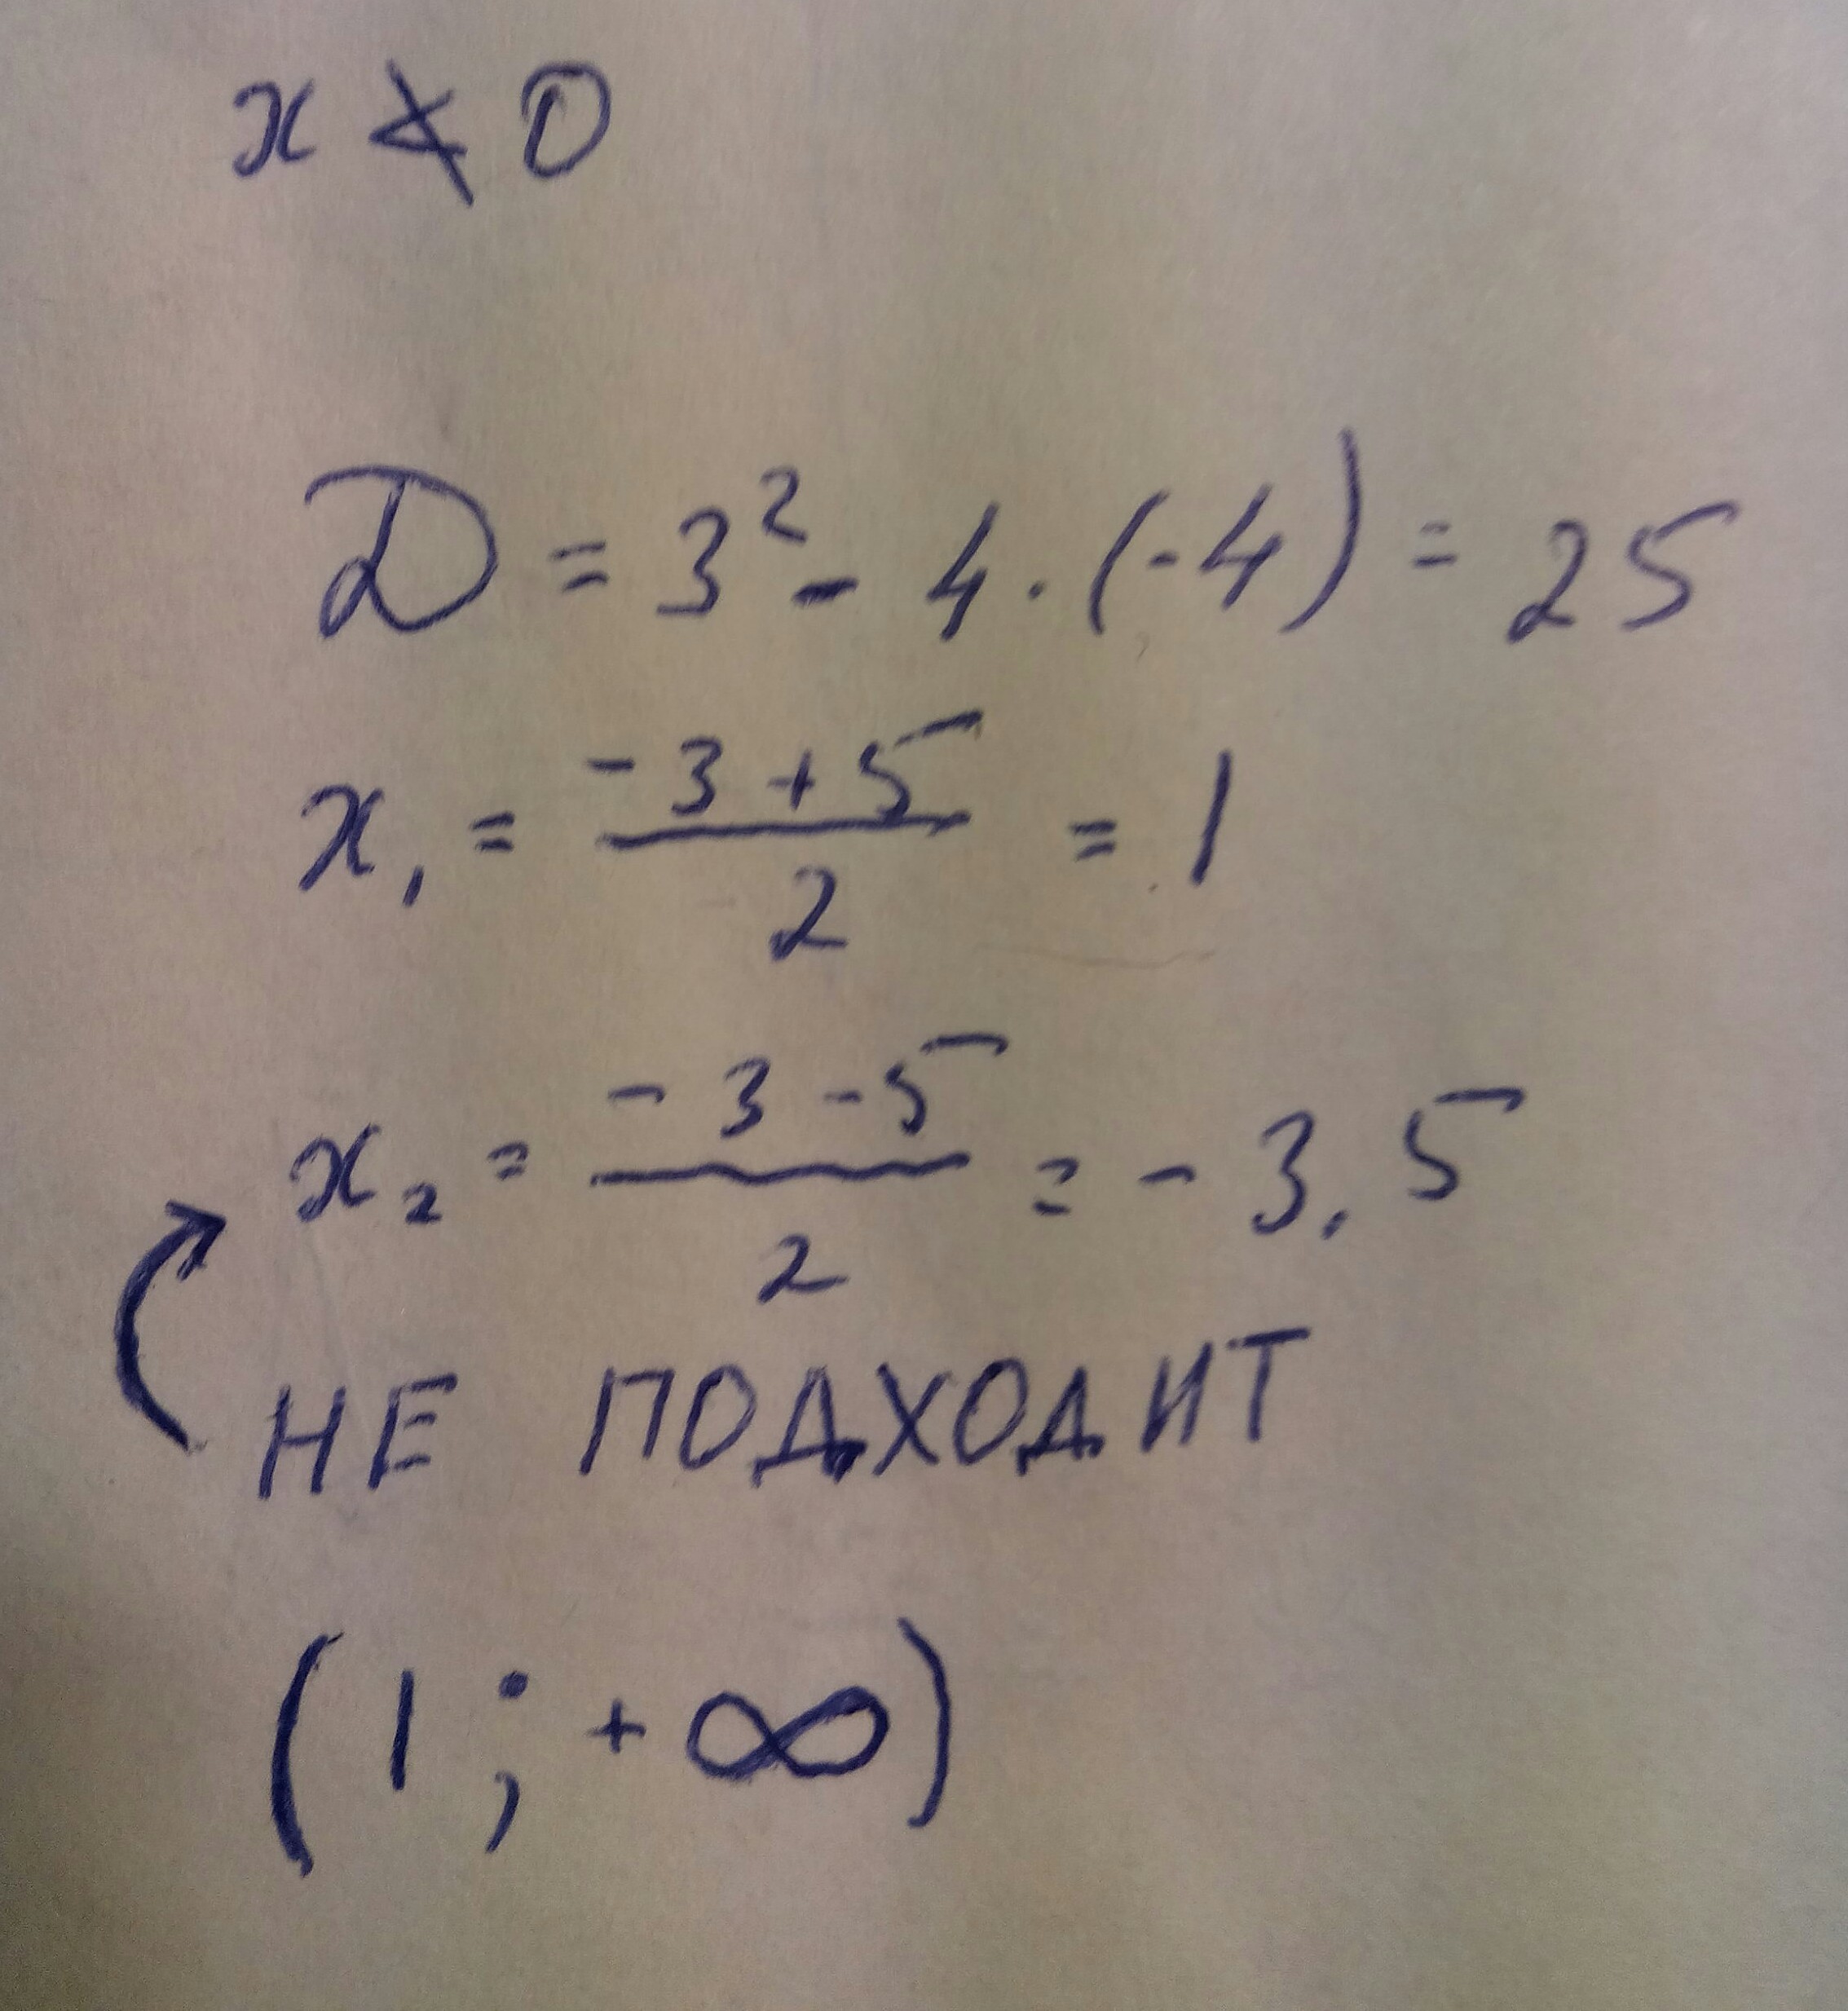 x ≮ 0
D = 3² - 4 · (-4) = 25
x₁ = (-3 + 5)/2 = 1
x₂ = (-3 - 5)/2 = -3,5
НЕ ПОДХОДИТ
(1 ; +∞)